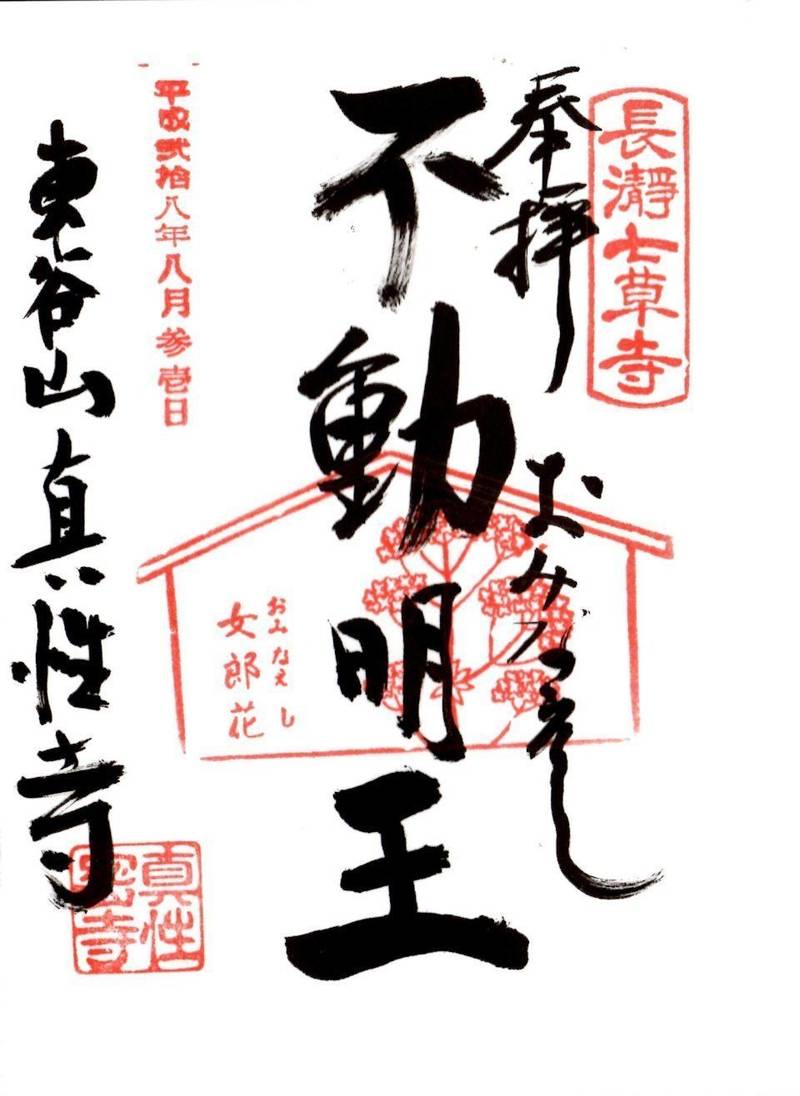 長瀞七草寺
奉拝
おみなえし
不動明王
おみなえし
女郎花
平成弐拾八年八月参壱日
東谷山真性寺
真性
密寺